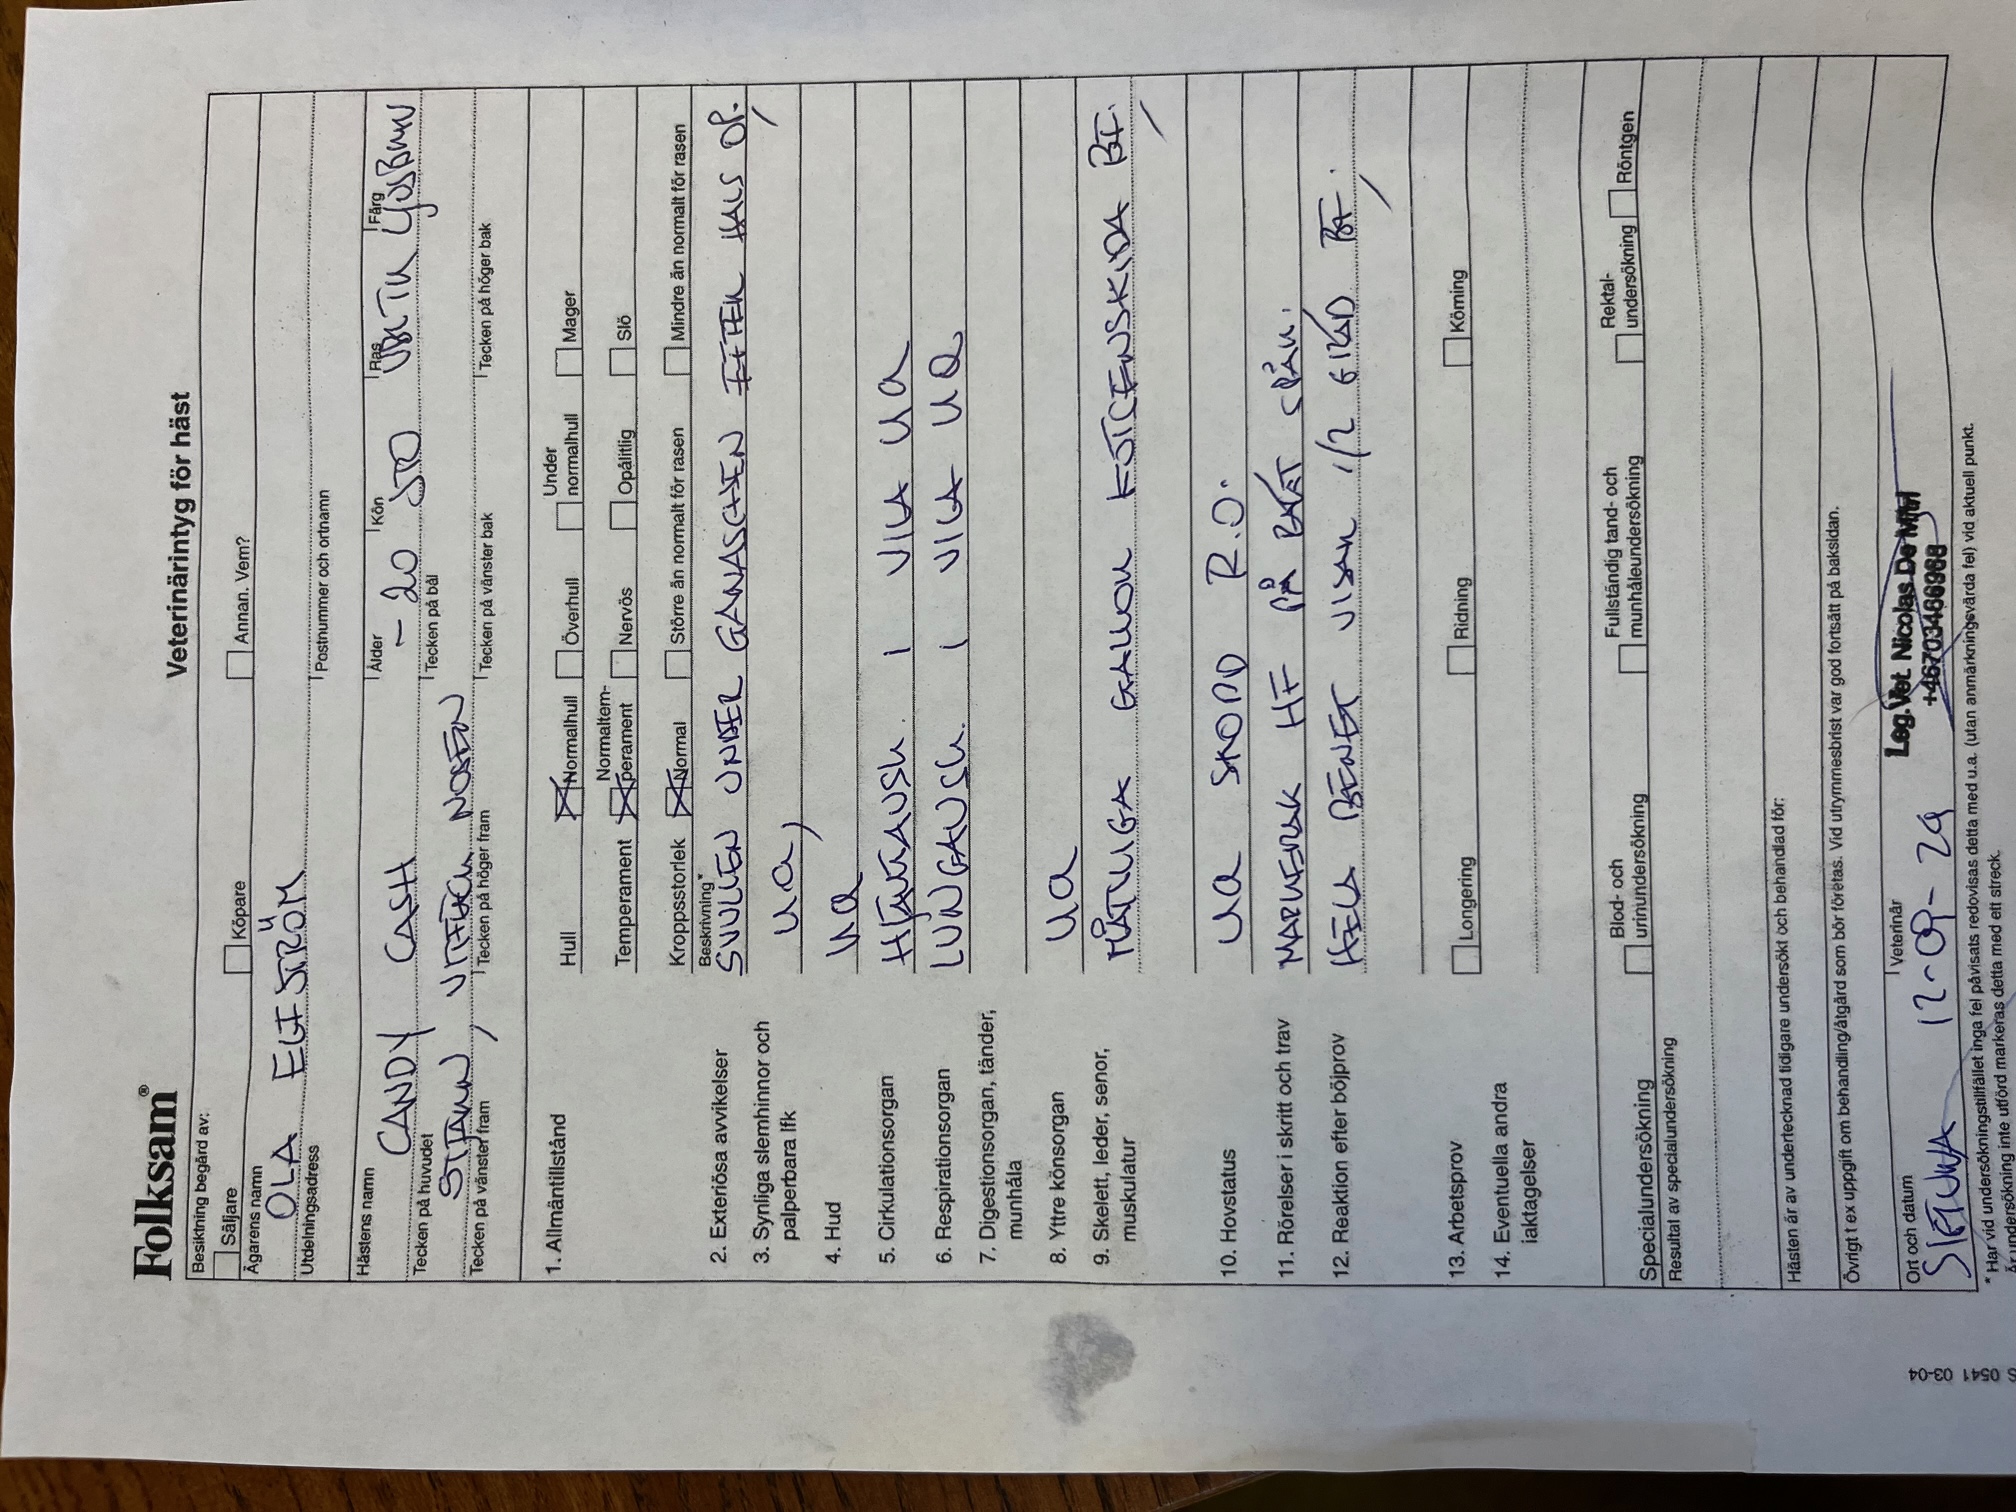 Folksam®
Veterinärintyg för häst
Besiktning begärd av:
Säljare Köpare Annan. Vem?
Ägarens namn
OLA
Utdelningsadress Postnummer och ortnamn
Hästens namn Ålder Kön Ras Färg
CANDY CASH - 20 STO LJUSBRUN
Tecken på huvudet Tecken på bål
STJÄRN, NOSEN
Tecken på vänster fram Tecken på höger fram Tecken på vänster bak Tecken på höger bak
1. Allmäntillstånd Hull Normalhull Överhull Under normalhull Mager
Temperament Normaltem-
perament Nervös Opålitlig Slö
Kroppsstorlek Normal Större än normalt för rasen Mindre än normalt för rasen
Beskrivning*
2. Exteriösa avvikelser SVULLEN UNDER GANASCHEN EFTER HALS OP.
3. Synliga slemhinnor och
palperbara lfk ua
4. Hud ua
5. Cirkulationsorgan HJÄRTAUSK. I VILA UA
6. Respirationsorgan LUNGAUSK. I VILA UA
7. Digestionsorgan, tänder,
munhåla
8. Yttre könsorgan ua
9. Skelett, leder, senor,
muskulatur MÅTTLIGA GALLOR KOTSENSKIDA BF.
10. Hovstatus ua SKODD R.O.
11. Rörelser i skritt och trav MARKERAR HF PÅ BÖJT SPÅR.
12. Reaktion efter böjprov HELA BENET VISAR 1/2 GRAD BF.
13. Arbetsprov Longering Ridning Körning
14. Eventuella andra
iaktagelser
Specialundersökning Blod- och
urinundersökning Fullständig tand- och
munhåleundersökning Rektal-
undersökning Röntgen
Resultat av specialundersökning
Hästen är av undertecknad tidigare undersökt och behandlad för:
Övrigt t ex uppgift om behandling/åtgärd som bör företas. Vid utrymmesbrist var god fortsätt på baksidan.
Ort och datum Veterinär
SIGTUNA 12-09-29
Leg. Vet. Nicolas De Mitri
+46703466968
* Har vid undersökningstillfället inga fel påvisats redovisas detta med u.a. (utan anmärkningsvärda fel) vid aktuell punkt.
Är undersökning inte utförd markeras detta med ett streck.
S 0541 03-04